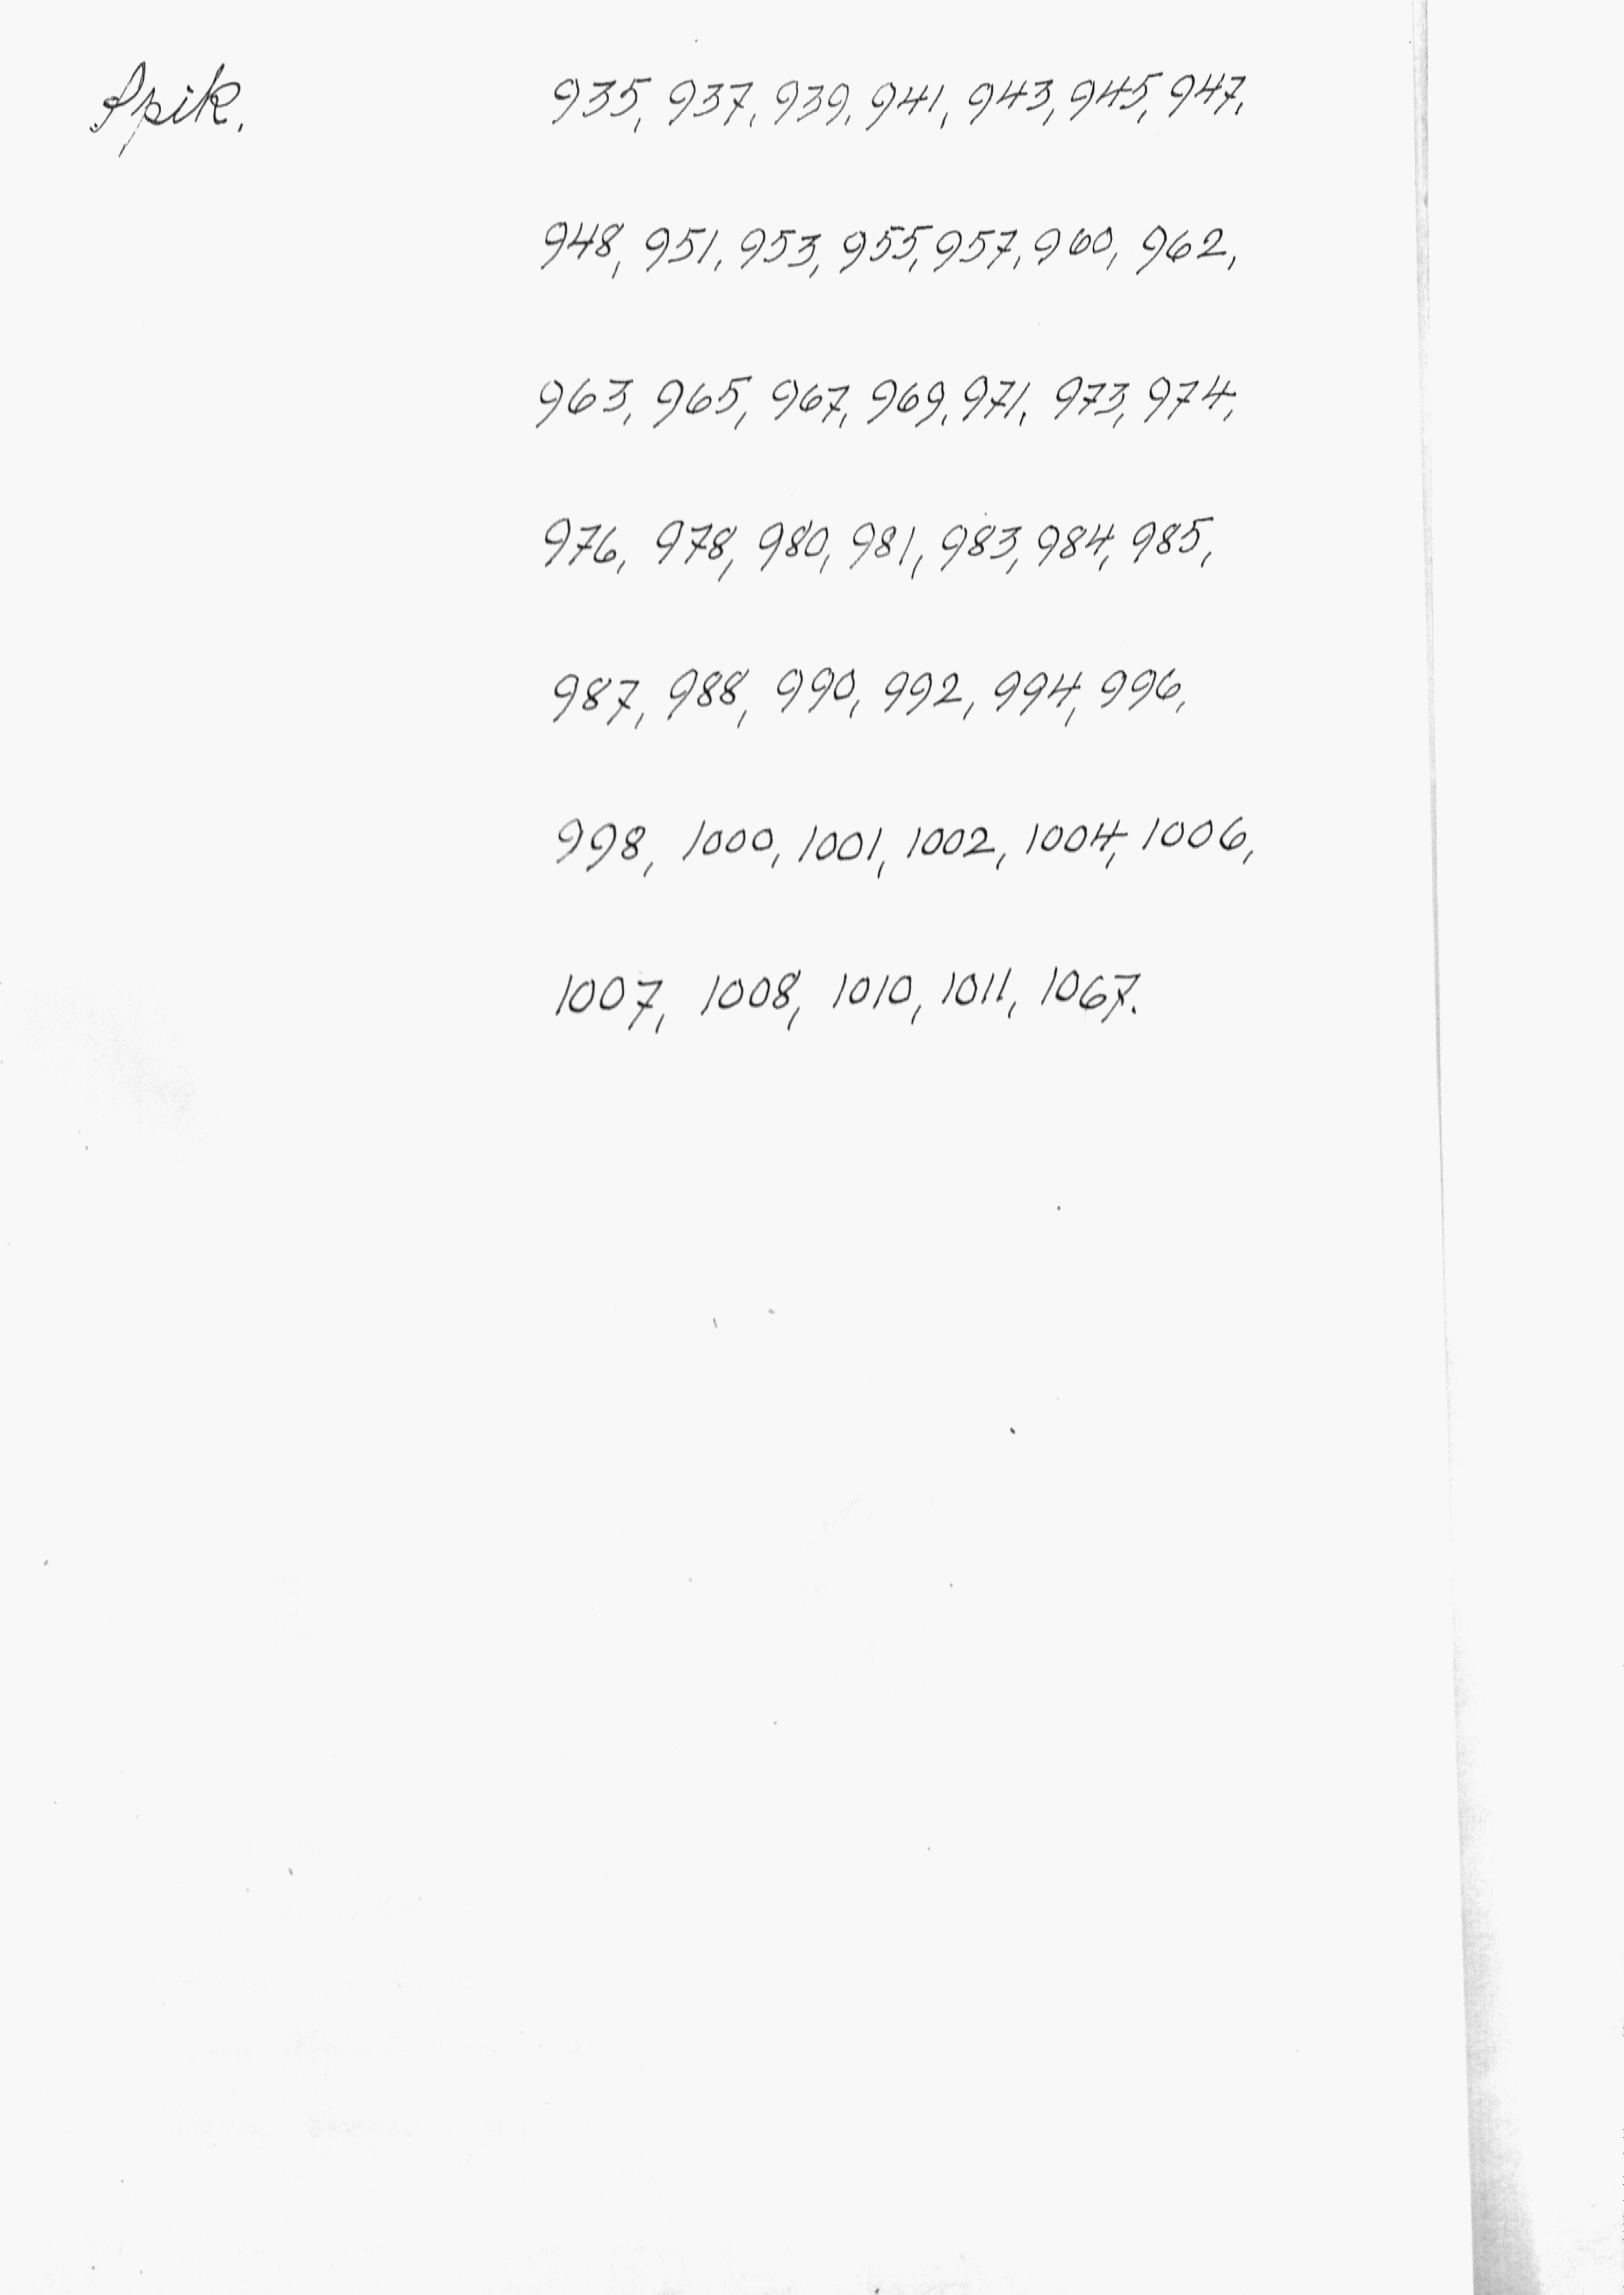 Spik. 935, 937, 939, 941, 943, 945, 947,
948, 951, 953, 955, 957, 960, 962,
963, 965, 967, 969, 971, 973, 974,
976, 978, 980, 981, 983, 984, 985,
987, 988, 990, 992, 994, 996,
998, 1000, 1001, 1002, 1004, 1006,
1007, 1008, 1010, 1011, 1067.